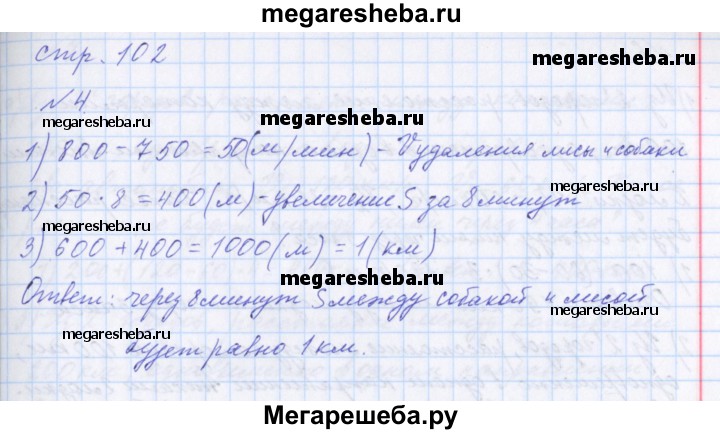 megaresheba.ru
стр. 102
megaresheba.ru
№4
megaresheba.ru
megaresheba.ru
1) 800 - 750 = 50(м/мин) - Vудаления лисы и собаки
megaresheba.ru
2) 50 · 8 = 400(м) - увеличение S за 8 минут
3) 600 + 400 = 1000(м) = 1(км)
megaresheba.ru
Ответ: через 8 минут S между собакой и лисой
megaresheba.ru
будет равно 1 км.
megaresheba.ru
Мегарешеба.ру